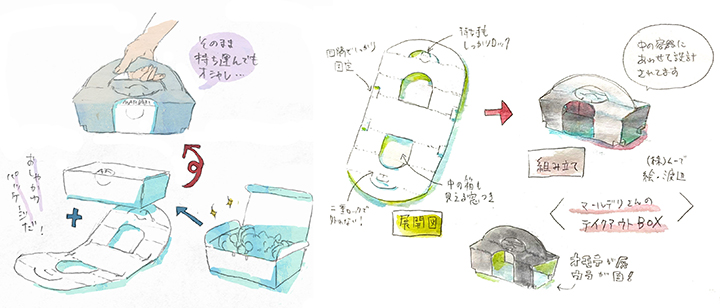 そのまま
持ち運んでも
オシャレ…
おしゃかわ
パッケージだ!
四隅でしっかり
固定
持ち手も
しっかりロック
中の箱も
見える窓つき
二重ロックで
外れない!
展開図
中の容器に
あわせて設計
されてます
組み立て
(株)くーで
絵・渡辺
マールデリさんの
テイクアウトBOX
オモテが黒
ウラが白!